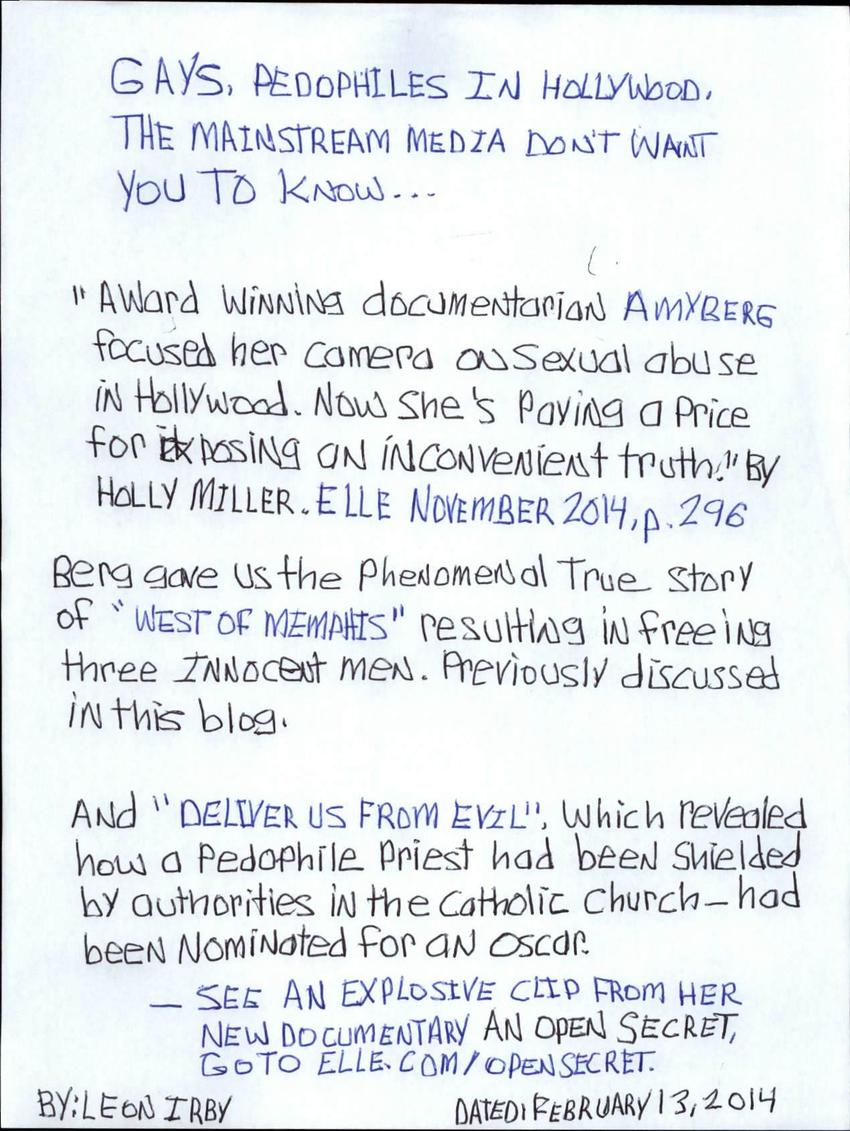 GAYS, PEDOPHILES IN HOLLYWOOD.
THE MAINSTREAM MEDIA DON'T WANT
YOU TO KNOW...
"AWard WINNING documentarian AMYBERG
focused her camera on Sexual abuse
in Hollywood. Now She's Paying a Price
for exposing an inconvenient truth." BY
HOLLY MILLER. ELLE NOVEMBER 2014, p. 296
Berg gave us the Phenomenal True Story
of "WEST OF MEMPHIS" resulting in freeing
three INNocent men. Previously discussed
in this blog.
And "DELIVER US FROM EVIL", Which revealed
how a Pedophile Priest had been Shielded
by authorities in the Catholic Church - had
been Nominated for an Oscar.
— SEE AN EXPLOSIVE CLIP FROM HER
NEW DOCUMENTARY AN OPEN SECRET,
GO TO ELLE.COM/OPENSECRET.
BY: LEON IRBY DATED: FEBRUARY 13, 2014